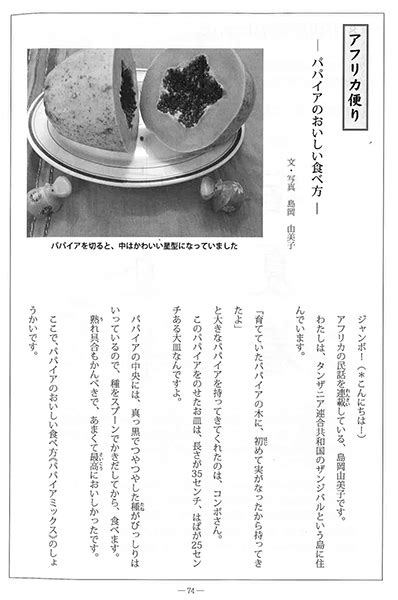 アフリカ便り
― パパイアのおいしい食べ方 ―
文・写真 島岡 由美子
パパイアを切ると、中はかわいい星型になっていました
ジャンボ！（＊こんにちは！）
アフリカの民話を連載している、島岡由美子です。
わたしは、タンザニア連合共和国のザンジバルという島に住
んでいます。
「育てていたパパイアの木に、初めて実がなったから持ってき
たよ」
と大きなパパイアを持ってきてくれたのは、コンボさん。
このパパイアをのせたお皿は、長さが35センチ、はばが25セン
チある大皿なんですよ。
パパイアの中央には、真っ黒でつやつやした種がびっしりは
いっているので、種をスプーンでかきだしてから、食べます。
熟れ具合もかんぺきで、あまくて最高においしかったです。
ここで、パパイアのおいしい食べ方《パパイアミックス》のしょ
うかいです。
― 74 ―